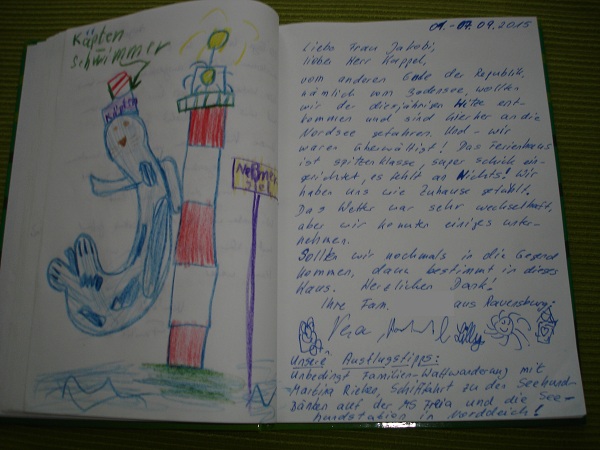 Käpten
Schwimmer
Käpten
Neßmer
siel
01.-07.09.2015
Liebe Frau Jakobi,
lieber Herr Kappel,
vom anderen Ende der Republik,
nämlich vom Bodensee, wollten
wir der diesjährigen Hitze ent-
kommen und sind hierher an die
Nordsee gefahren. Und - wir
waren überwältigt! Das Ferienhaus
ist spitzenklasse, super schick ein-
gerichtet, es fehlt an Nichts! Wir
haben uns wie Zuhause gefühlt.
Das Wetter war sehr wechselhaft,
aber wir konnten einiges unter-
nehmen.
Sollten wir nochmals in die Gegend
kommen, dann bestimmt in dieses
Haus. Herzlichen Dank!
Ihre Fam. aus Ravensburg:
Vera Lilly
Unsere Ausflugstipps:
Unbedingt Familien-Wattwanderung mit
Martina Rieken, Schifffahrt zu den Seehund-
Bänken auf der MS Freia und die See-
hundstation in Norddeich!